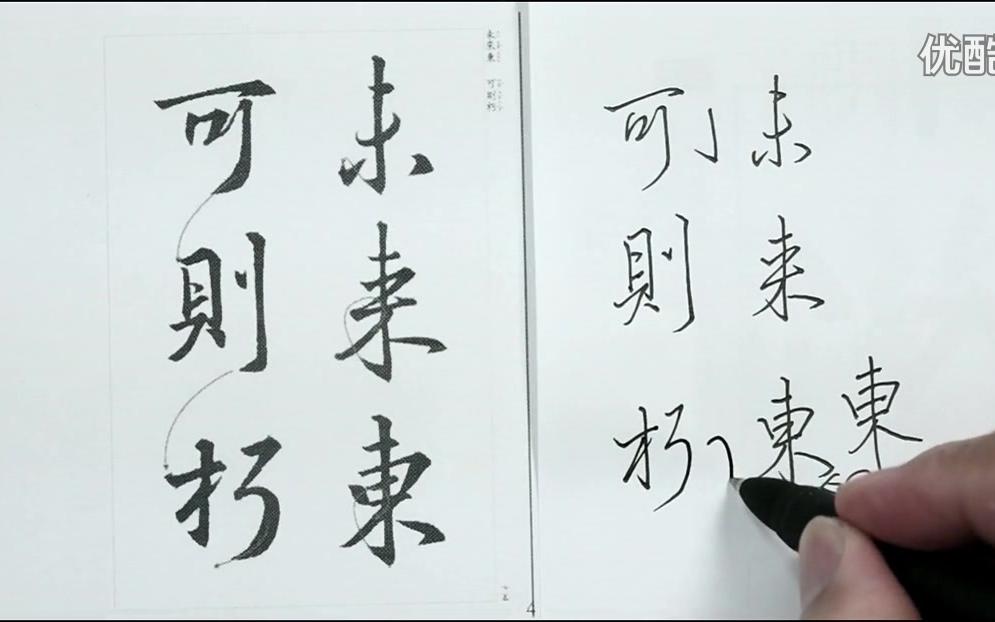 未來東 可則朽
未来東
可則朽
東
未来東
可則朽
4
优酷